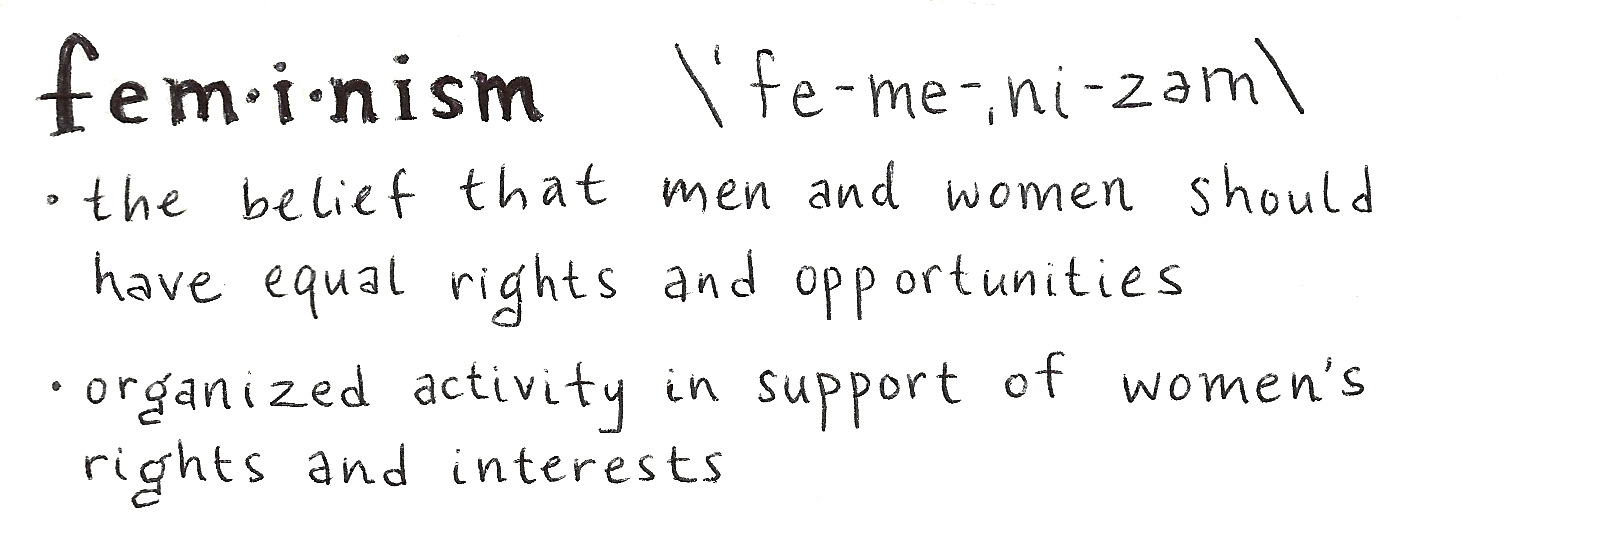 fem·i·nism \ˈfe-me-ˌni-zəm\
• the belief that men and women should
have equal rights and opportunities
• organized activity in support of women's
rights and interests